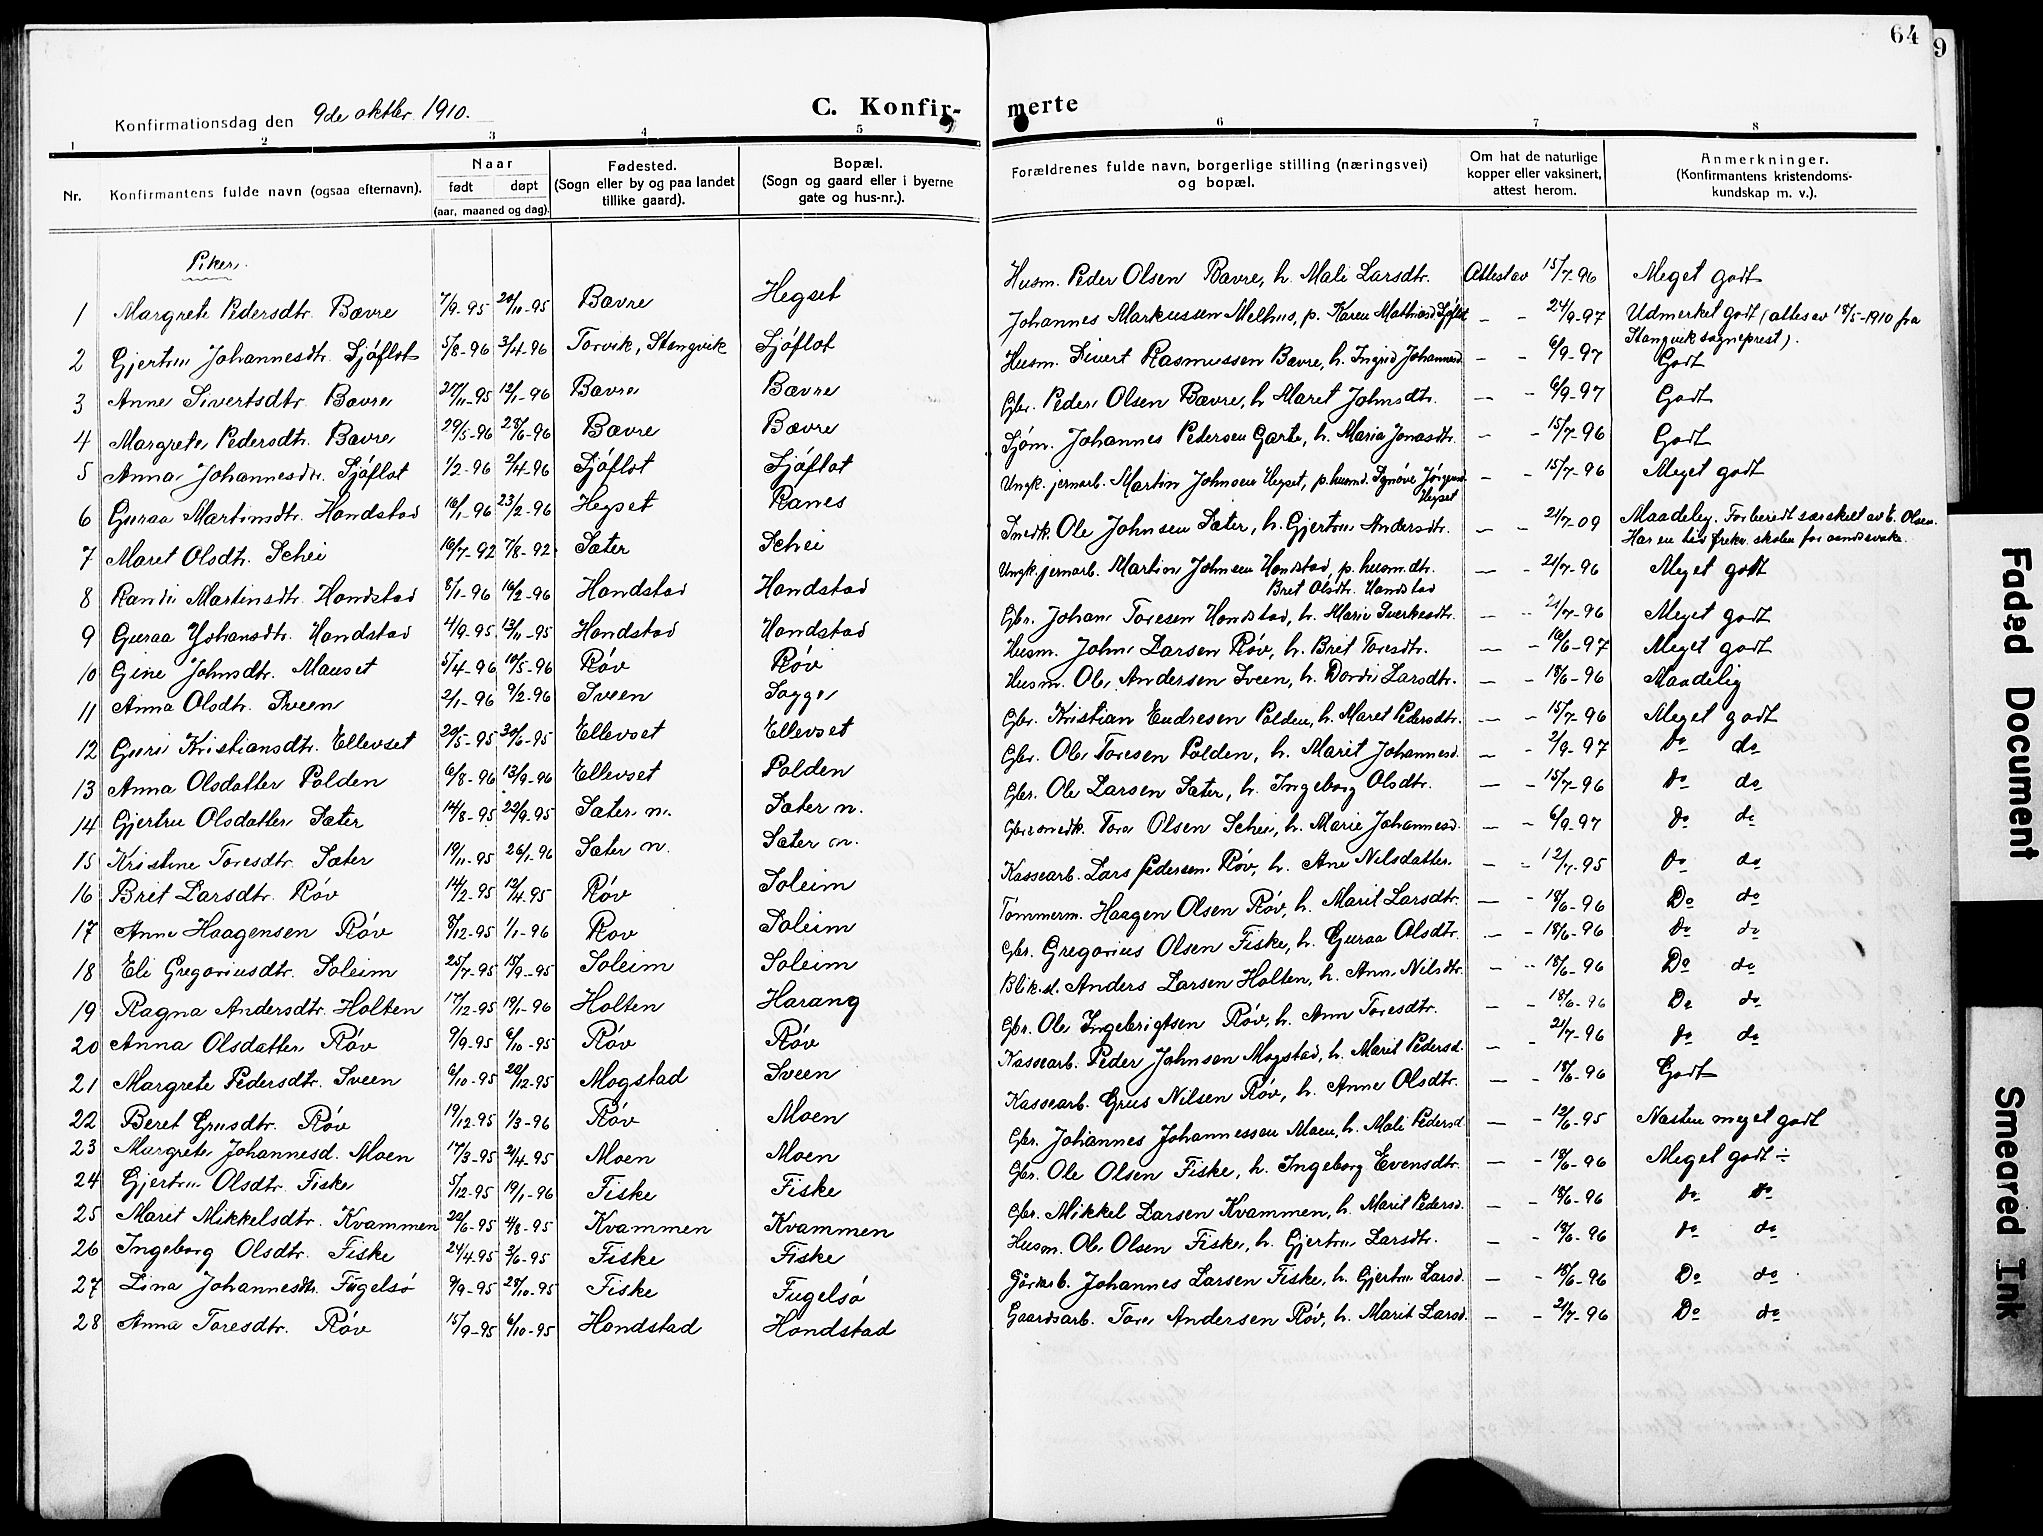 64
9
Konfirmationsdag den 9de oktbr. 1910.
C. Konfir-
merte
1 2 3 4 5 6 7 8
Nr.
Konfirmantens fulde navn (ogsaa efternavn).
Naar
født døpt
(aar, maaned og dag).
Fødested.
(Sogn eller by og paa landet
tillike gaard).
Bopæl.
(Sogn og gaard eller i byerne
gate og hus-nr.).
Forældrenes fulde navn, borgerlige stilling (næringsvei)
og bopæl.
Om hat de naturlige
kopper eller vaksinert,
attest herom.
Anmerkninger.
(Konfirmantens kristendoms-
kundskap m. v.).
Piker.
1 Margrete Pedersdtr. Bævre 7/9-95 20/10-95 Bævre Hegset Husm. Peder Olsen Bævre, h. Mali Larsdtr. Attest av 15/7-96 Meget godt
2 Gjertru Johannesdtr. Sjøflot 5/8-96 3/4-96 Torvik, Stangvik Sjøflot Johannes Markussen Melhus, p. Karen Mathiasd Sjøflot — - 24/9-97 Udmerket godt (attes av 18/5-1910 fra
Stangvik sogneprest).
3 Anne Sivertsdtr. Bævre 27/11-95 12/1-96 Bævre Bævre Husm. Sivert Rasmussen Bævre, h. Ingrid Johannesd. — - 6/9-97 Godt
4 Margrete Pedersdtr. Bævre 29/5-96 28/6-96 Bævre Bævre Gbr. Peder Olsen Bævre, h. Maret Johnsdtr. — - 6/9-97 Godt
5 Anna Johannesdtr. Sjøflot 1/2-96 2/4-96 Sjøflot Sjøflot Sjøm. Johannes Pedersen Garte, h. Maria Jonasdtr. — - 15/7-96 Godt
6 Guraa Martinsdtr. Hondstad 16/1-96 23/2-96 Hegset Ranes Ungk. jernarb. Martin Johnsen Hegset, p. husmd. Synøve Jørgensd.
Hegset — - 15/7-96 Meget godt
7 Maret Olsdtr. Schei 16/7-92 7/8-92 Sæter Schei Smedk. Ole Johnsen Sæter, h. Gjertru Andersdtr. — - 21/7-09 Maadelig. Forberedt særskilt av E. Olsen.
Har en tid frekv. skolen for aandssvake.
8 Randi Martinsdtr. Hondstad 8/1-96 16/2-96 Hondstad Hondstad Ungk. jernarb. Martin Johnsen Hondstad, p. husm.dtr.
Brit Olsdtr. Hondstad — - 21/7-96 Meget godt
9 Guraa Johansdtr. Hondstad 4/9-95 13/11-95 Hondstad Hondstad Gbr. Johan Toresen Hondstad, h. Marie Sverkesdtr. — - 21/7-96 Meget godt
10 Gine Johnsdtr. Mauset 5/4-96 10/5-96 Røv Røv Husm. John Larsen Røv, h. Brit Toresdtr. — - 16/6-97 Meget godt
11 Anna Olsdtr. Sveen 2/1-96 9/2-96 Sveen Sogge Husm. Ole Andersen Sveen, h. Dordi Larsdtr. — - 18/6-96 Maadelig
12 Guri Kristiansdtr. Ellevset 20/5-95 30/6-95 Ellevset Ellevset Gbr. Kristian Endresen Polden, h. Maret Pedersdtr. — - 15/7-96 Meget godt
13 Anna Olsdatter Polden 6/8-96 13/9-96 Ellevset Polden Gbr. Ole Toresen Polden, h. Marit Johannesd. — - 2/9-97 Do do
14 Gjertru Olsdatter Sæter 14/8-95 22/9-95 Sæter n. Sæter n. Gbr. Ole Larsen Sæter, h. Ingeborg Olsdtr. — - 15/7-96 Do do
15 Kristine Toresdtr. Sæter 19/11-95 26/1-96 Sæter n. Sæter n. Gbr smedk. Tore Olsen Schei, h. Marie Johannesd. — - 6/9-97 Do do
16 Brit Larsdtr. Røv 14/2-95 12/4-95 Røv Soleim Kassearb. Lars Pedersen Røv, h. Ane Nilsdatter. — - 12/7-95 Do do
17 Anne Haagensen Røv 8/12-95 1/1-96 Røv Soleim Tømmerm. Haagen Olsen Røv, h. Marit Larsdtr. — - 18/6-96 Do do
18 Eli Gregoriusdtr. Soleim 25/7-95 15/9-95 Soleim Soleim Gbr. Gregorius Olsen Fiske, h. Guraa Olsdtr. — - 18/6-96 Do do
19 Ragna Andersdtr. Holten 17/12-95 19/1-96 Holten Harang Blik.sl. Anders Larsen Holten, h. Ann Nilsdtr. — - 18/6-96 Do do
20 Anna Olsdatter Røv 9/9-95 6/10-95 Røv Røv Gbr. Ole Ingebrigtsen Røv, h. Ann Toresdtr. — - 18/6-96 Do do
21 Margrete Pedersdtr. Sveen 6/10-95 22/12-95 Mogstad Sveen Kassearb. Peder Johnsen Mogstad, h. Marit Pedersd. — - 21/7-96 do do
22 Beret Grusdtr. Røv 19/12-95 1/3-96 Røv Moen Kassearb. Grus Nilsen Røv, h. Anne Olsdtr. — - 18/6-96 Godt
23 Margrete Johannesd. Moen 17/3-95 21/4-95 Moen Moen Gbr. Johannes Johannessen Moen, h. Mali Pedersd. — - 12/6-95 Næsten meget godt
24 Gjertru Olsdtr. Fiske 5/12-95 19/1-96 Fiske Fiske Gbr. Ole Olsen Fiske, h. Ingeborg Evensdtr. — - 18/6-96 Meget godt ÷
25 Marit Mikkelsdtr. Kvammen 22/6-95 4/8-95 Kvammen Kvammen Gbr. Mikkel Larsen Kvammen, h. Marit Pedersd. — - 18/6-96 do do
26 Ingeborg Olsdtr. Fiske 24/4-95 3/6-95 Fiske Fiske Husm. Ole Olsen Fiske, h. Gjertru Larsdtr. — - 18/6-96 do do
27 Lina Johannesdtr. Fugelsø 9/9-95 28/10-95 Fiske Fugelsø Johannes Larsen Fiske, h. Gjertru Larsd. — - 18/6-96 Do do
28 Anna Toresdtr. Røv 15/9-95 6/10-95 Hondstad Hondstad Gaardsarb. Tore Andersen Røv, h. Marit Larsd. — - 21/7-96 Do do
Faded Document
Smeared Ink